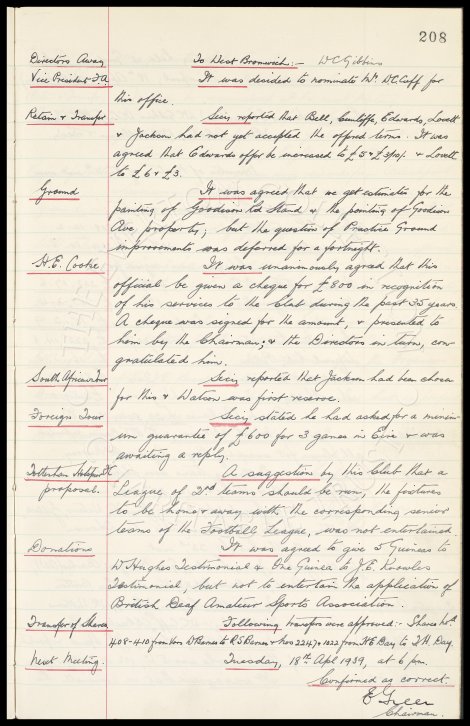 208
Directors Away To West Bromwich:- W C Gibbins
Vice President F.A. It was decided to nominate Mr. W.C. Cuff for
this office.
Retain & Transfer Secy reported that Bell, Cunliffe, Edwards, Lovett
& Jackson had not yet accepted the offered terms. It was
agreed that Edwards offer be increased to £5 & £3 & Lovett
to £6 & £3.
Ground It was agreed that we get estimates for the
painting of Goodison Rd Stand & the pointing of Goodison
Ave property; but the question of Practice Ground
improvements was deferred for a fortnight.
H.E. Cooke It was unanimously agreed that this
official be given a cheque for £800 in recognition
of his services to the Club during the past 35 years.
A cheque was signed for the amount, & presented to
him by the Chairman; & the Directors in turn, con-
gratulated him.
South African Tour Secy reported that Jackson had been chosen
for this & Watson was first reserve.
Foreign Tour Secy stated he had asked for a minim-
um guarantee of £600 for 3 games in Eire & was
awaiting a reply.
Tottenham Hotspur FC A suggestion by this Club that a
proposal. League of 2nd teams should be run, the fixtures
to be home & away with the corresponding senior
teams of the Football League, was not entertained.
Donations It was agreed to give 5 Guineas to
W Hughes Testimonial & One Guinea to J.E. Knowles
Testimonial, but not to entertain the application of
British Deaf Amateur Sports Association.
Transfer of Shares Following transfers were approved:- Shares Nos
408-410 from W to R S & Nos 2247 & 1022 from H E Day to J.H. Day.
Next Meeting. Tuesday, 18th Apl 1939, at 6 pm.
Confirmed as correct
E Green
Chairman.